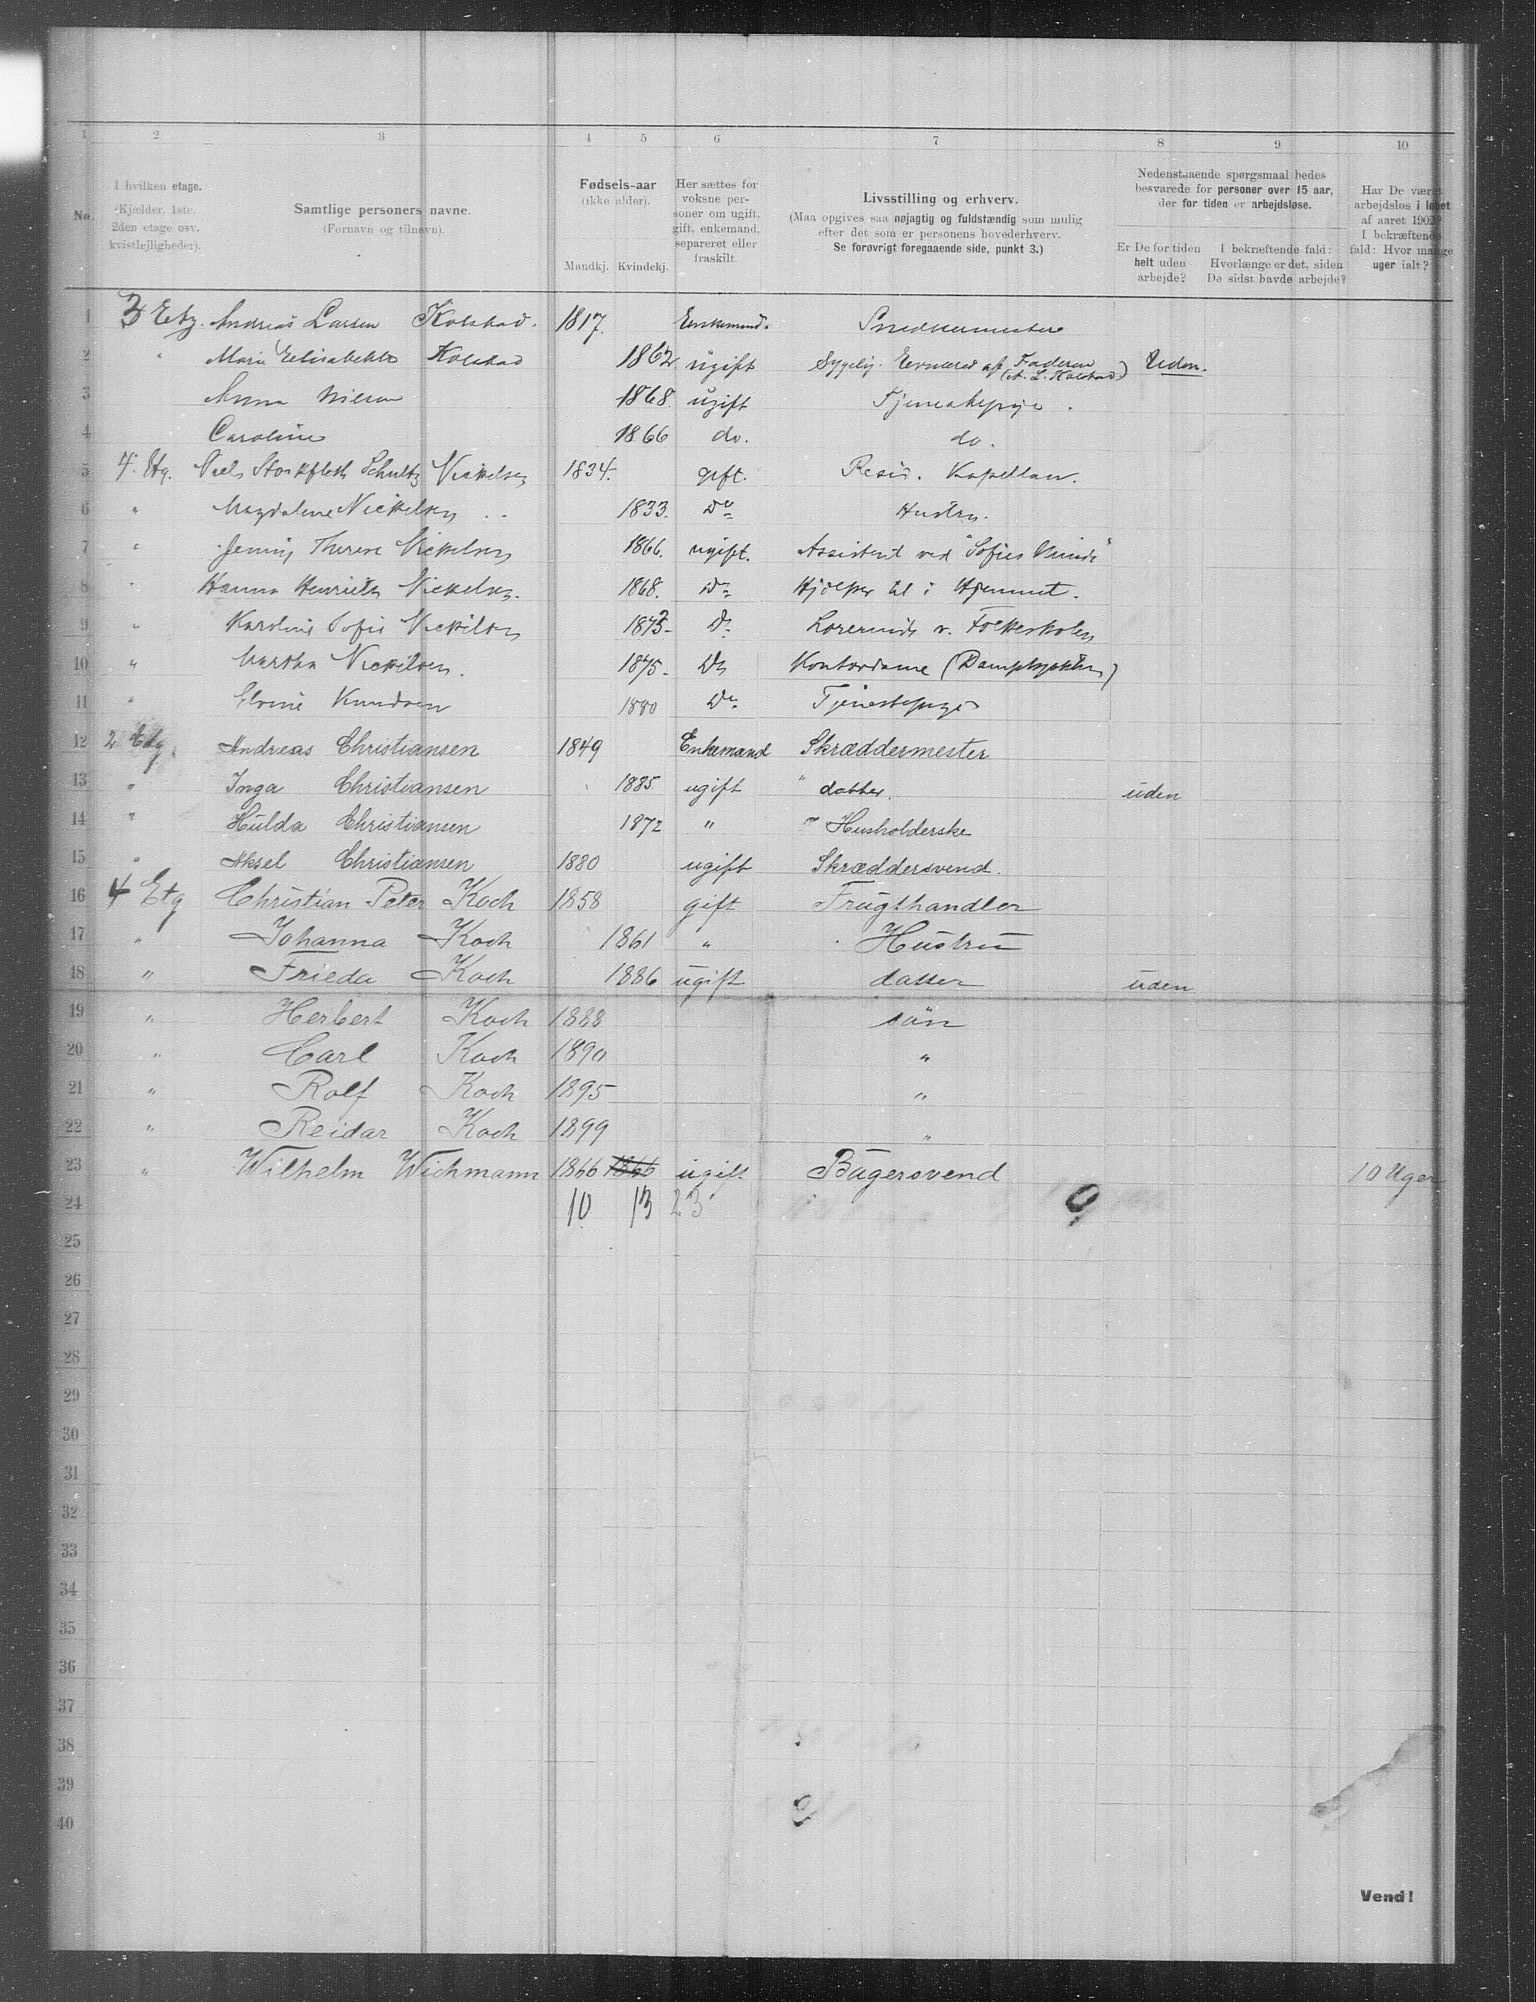 1 2 3 4 5 6 7 8 9 10
No.
I hvilken etage. (Kjælder, 1ste, 2den etage osv. kvistlejligheder).
Samtlige personers navne. (Fornavn og tilnavn).
Fødsels-aar (ikke alder). Mandkj. Kvindekj.
Her sættes for voksne personer om ugift, gift, enkemand, separeret eller fraskilt.
Livsstilling og erhverv. (Maa opgives saa nøjagtig og fuldstændig som mulig efter det som er personens hovederhverv. Se forøvrigt foregaaende side, punkt 3.)
Nedenstaaende spørgsmaal bedes besvarede for personer over 15 aar, der for tiden er arbejdsløse.
Er De for tiden helt uden arbejde?
I bekræftende fald: Hvorlænge er det, siden De sidst havde arbejde?
Har De været arbejdsløs i løbet af aaret 1902? I bekræftende fald: Hvor mange uger ialt?
1 3 Etg. Andreas Larsen Kolstad. 1817. Enkemand. Snedkermester
2 " Marie Elisabeth Kolstad 1862 ugift Sygelig. Ernæres af Faderen (A. L. Kolstad) Uden.
3 Anna Nilsen 1868. ugift Tjenestepige.
4 Caroline 1866 do. do.
5 4. Etg. Niels Stockfleth Schultz Nickelsen 1834. gift. Resid. Kapellan.
6 " Magdalene Nickelsen 1833. Do Hustru.
7 " Jenny Therese Nickelsen 1866. ugift. Assistent ved "Sofies Minde"
8 " Hanna Henriette Nickelsen. 1868. Do Hjælper til i Hjemmet.
9 " Karoline Sofie Nickelsen 1873 Do Lærerinde v. Folkeskolen
10 " Martha Nickelsen. 1875 Do Kontordame (Dampkjøkken)
11 " Elvine Knudsen 1880 Do Tjenestepige
12 2 Etg. Andreas Christiansen 1849 Enkemand Skræddermester
13 " Inga Christiansen 1885 ugift " datter. uden
14 " Hulda Christiansen 1872 " " Husholderske
15 " Aksel Christiansen 1880 ugift Skræddersvend.
16 4 Etg Christian Peter Koch 1858 gift Frugthandler
17 " Johanna Koch 1861 " Hustru
18 " Frieda Koch 1886 ugift datter uden
19 " Herbert Koch 1888 sön
20 " Carl Koch 1890 "
21 " Rolf Koch 1895 "
22 " Reidar Koch 1899 "
23 " Wilhelm Wichmann 1866 1866 ugift Bagersvend 10 Uger
24 10 13 23 9
25
26
27
28
29
30
31
32
33
34
35
36
37
38
39
40
Vend!